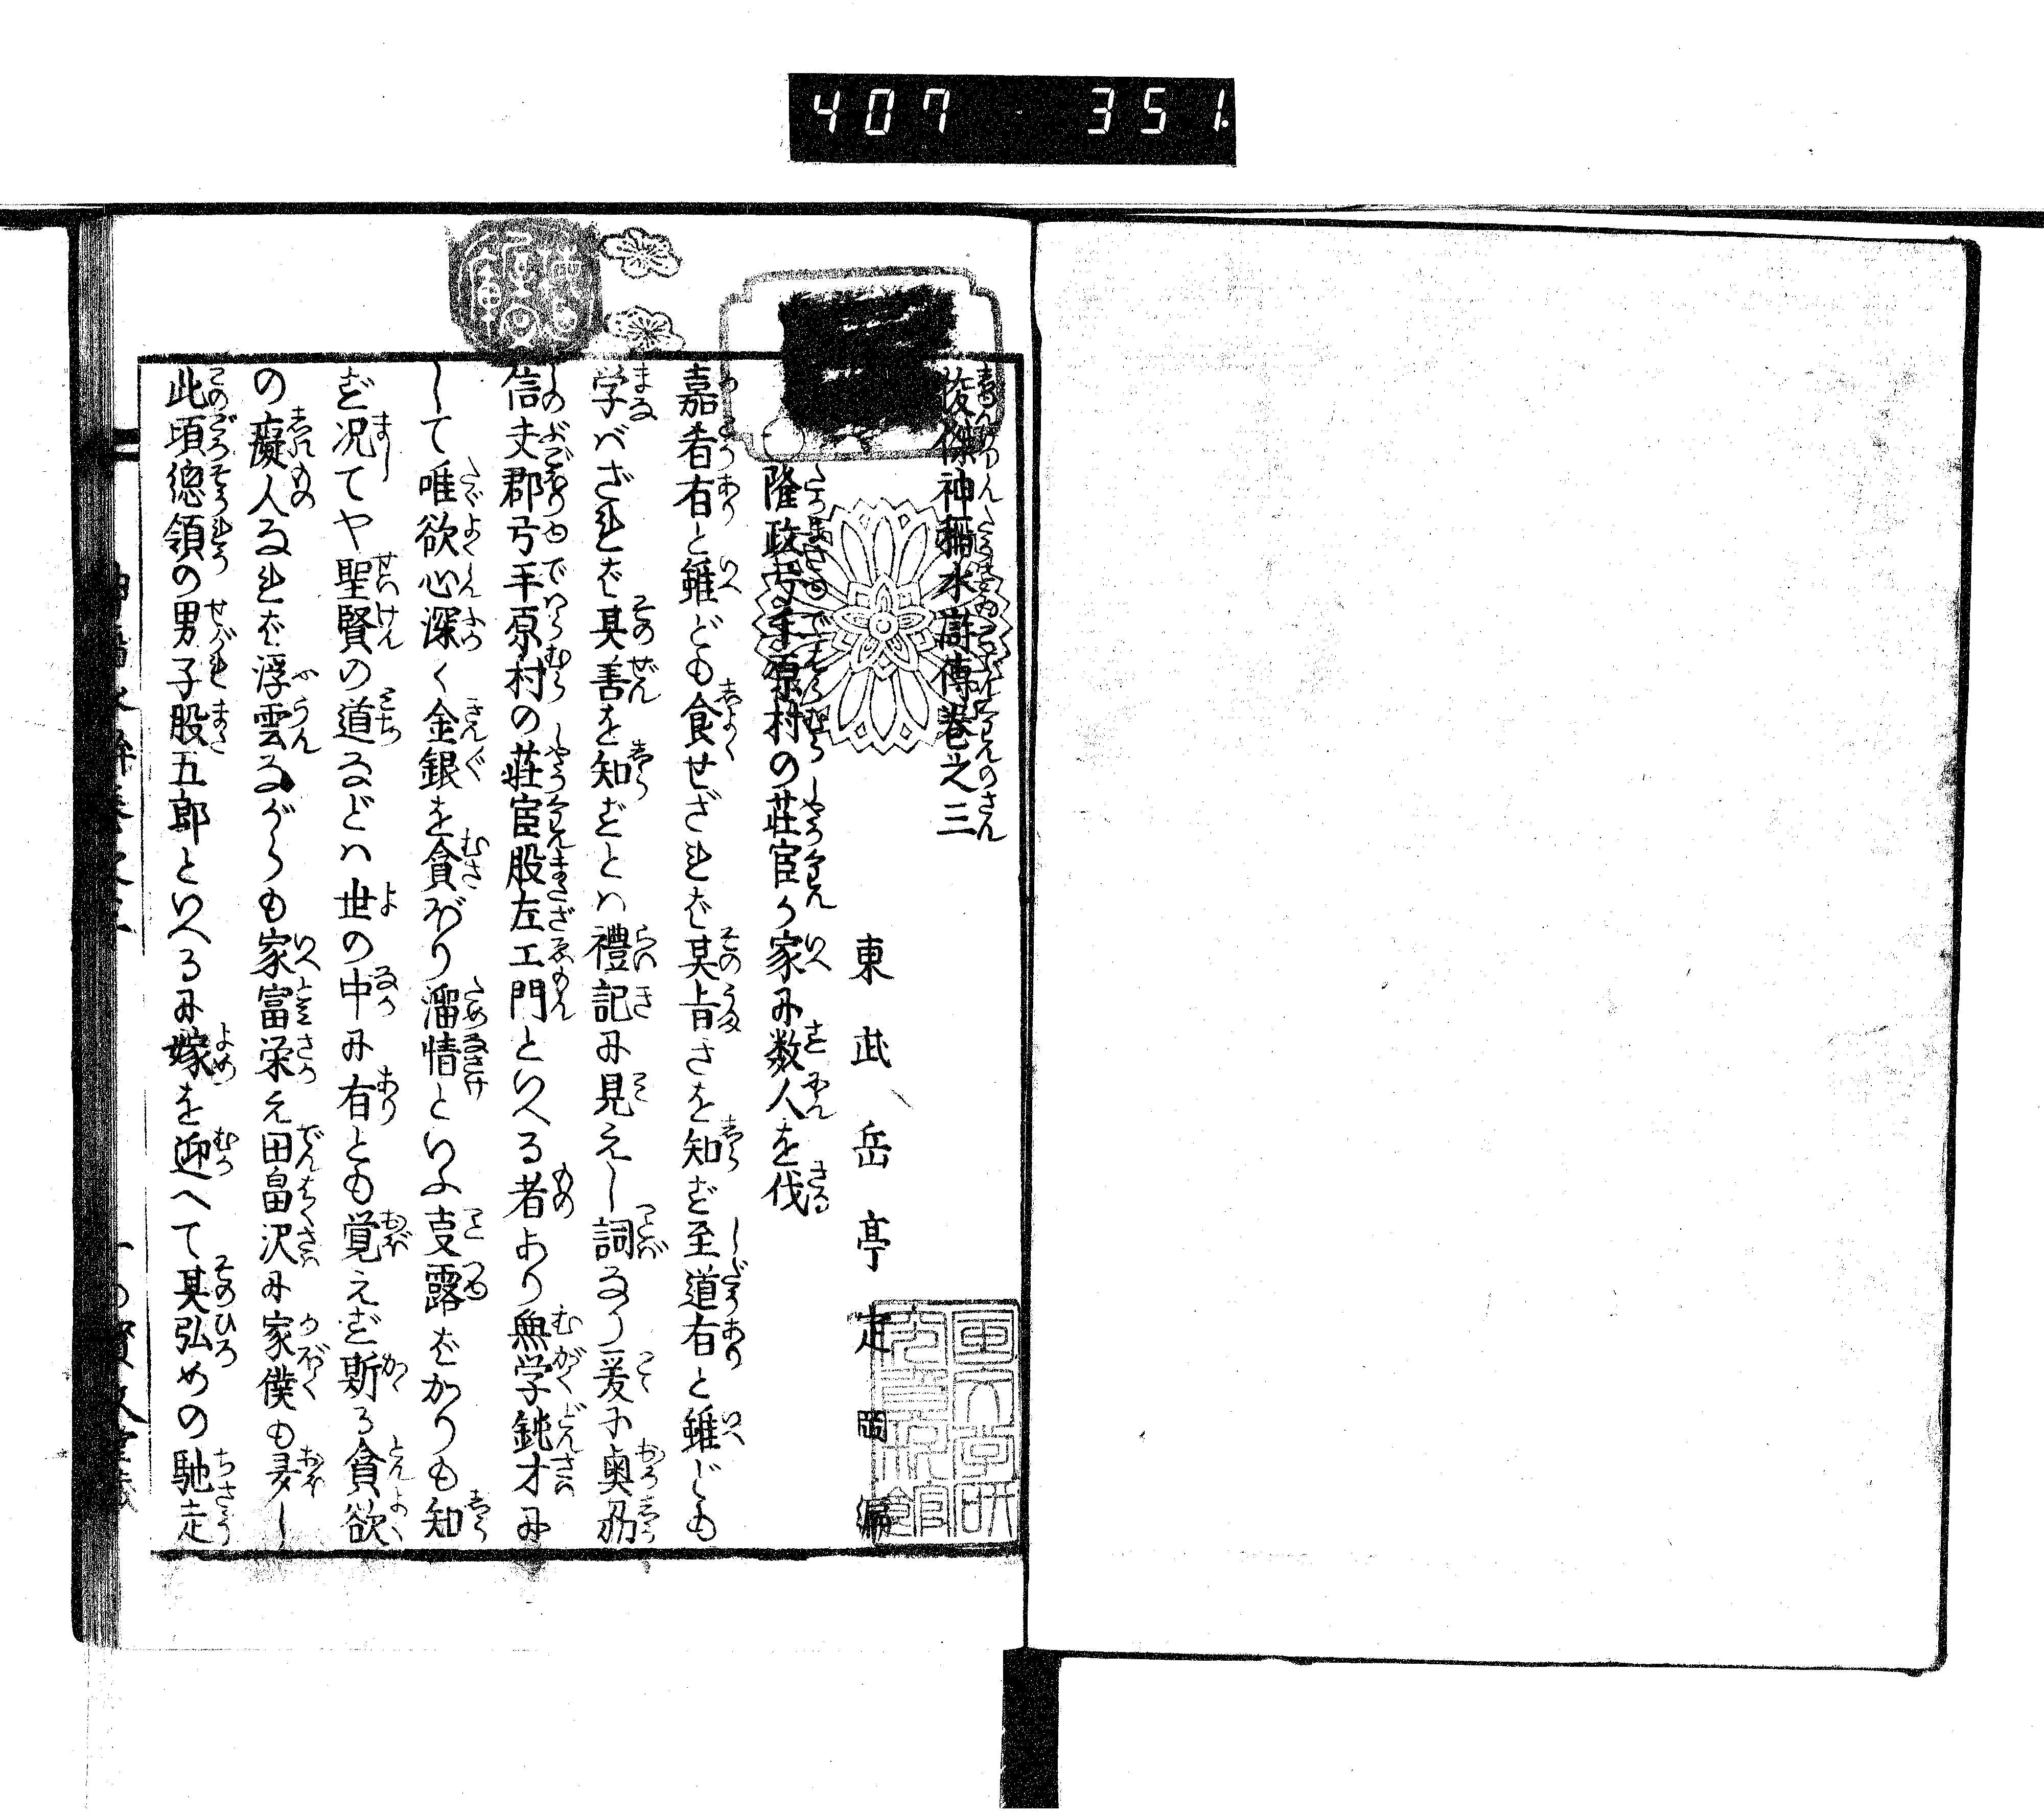 407 351
俊傑神稲水滸傳巻之三
東武 岳亭定岡編
隆政弓手原村の荘官が家に数人を伐
嘉肴有と雖ども食せざれば其旨さを知ず至道有と雖ども
学バざれば其善を知ずとハ禮記に見えし詞なり爰に奥刕
信夫郡弓手原村の荘官股左エ門といへる者あり無学鈍才に
して唯欲心深く金銀を貪ぼり溜情といふ叓露ばかりも知
ず况てや聖賢の道などハ世の中に有とも覚えず斯る貪欲
の癡人なれば浮雲ながらも家富栄え田畠沢に家僕も夛し
此頃總領の男子股五郎といへるに嫁を迎へて其弘めの馳走